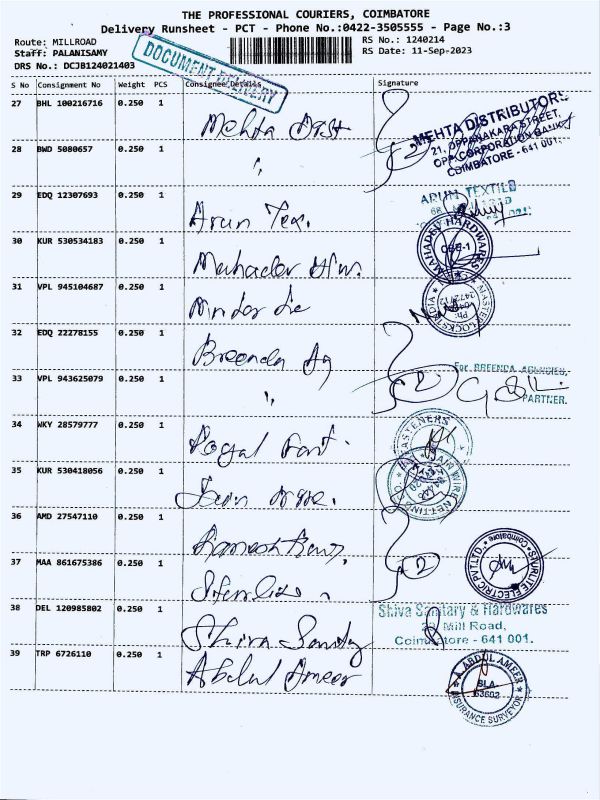 THE PROFESSIONAL COURIERS, COIMBATORE
Delivery Runsheet - PCT - Phone No.:0422-3505555 - Page No.:3
Route: MILLROAD
RS No.: 1240214
Staff: PALANISAMY
RS Date: 11-Sep-2023
DRS No.: DCJB124021403
DOCUMENT DELIVERY
S No Consignment No Weight PCS Consignee Details Signature
27 BHL 100216716 0.250 1
Mehta Dist
MEHTA DISTRIBUTORS
21, OPPANAKARA STREET,
OPP. CORPORATION BANK
COIMBATORE - 641 001.
28 BWD 5080657 0.250 1
"
29 EDQ 12307693 0.250 1
Arun Tex.
ARUN TEXTILE
30 KUR 530534183 0.250 1
Mahadev H/w.
MAHADEV HARDWARES
CBE-1
31 VPL 945104687 0.250 1
MASTER LOCKS INDIA
32 EDQ 22278155 0.250 1
Breenda Ag
For BREENDA AGENCIES,
PARTNER.
33 VPL 943625079 0.250 1
"
34 WKY 28579777 0.250 1
Royal Fast.
FASTENERS
35 KUR 530418056 0.250 1
Jain wire.
JAIN WIRE NETTING CO
36 AMD 27547110 0.250 1
37 MAA 861675386 0.250 1
2
STURLITE ELECTRIC PVT.LTD.
Coimbatore
38 DEL 120985802 0.250 1
Shiva Sanity
Shiva Sanitary & Hardwares
Mill Road,
Coimbatore - 641 001.
39 TRP 6726110 0.250 1
Abdul Ameer
A. ABDUL AMEER
SLA
63692
INSURANCE SURVEYOR